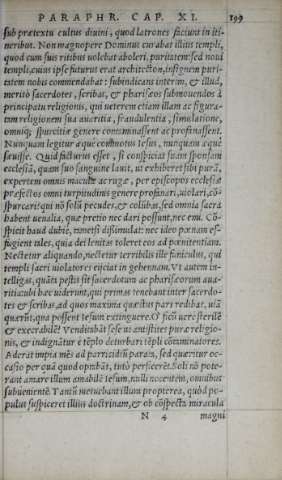 PARAPHR. CAP. XI. 199
sub prætextu cultus diuini, quod latrones faciunt in iti-
neribus. Non magnopere Dominus curabat illius templi,
quod cum suis ritibus uolebat aboleri, puritatem: sed noui
templi, cuius ipse futurus erat architecton, insignem puri-
tatem nobis commendabat: subindicans interim, & illud,
merito sacerdotes, scribas, & pharisæos submouendos à
principatu religionis, qui ueterem etiam illam ac figura-
tam religionem sua auaritia, fraudulentia, simulatione,
omniq; spurcitiæ genere contaminassent ac profanassent.
Nunquam legitur æque commotus Iesus, nunquam æque
sæuisse. Quid facturus esset, si conspiciat suam sponsam
ecclesiã, quam suo sanguine lauit, ut exhiberet sibi purã,
expertem omnis maculæ ac rugæ, per episcopos ecclesiæ
præfectos omni turpitudinis genere profanari, uiolari, cõ-
spurcari: qui nõ solũ pecudes, & collũbas, sed omnia sacra
habent uenalia, quæ pretio nec dari possunt, nec emi. Cõ-
spicit haud dubie, tametsi dissimulat: nec ideo pœnam ef-
fugient tales, quia dei lenitas toleret eos ad pœnitentiam.
Nectetur aliquando, nectetur terribilis ille funiculus, qui
templi sacri uiolatores eijciat in gehennam. Vt autem in-
telligas, quãta pestis sit sacerdotum ac pharisæorum aua-
ritia: ubi hæc uiderunt, qui primas tenebant inter sacerdo-
tes & scribas, ad quos maxima quæstus pars redibat, uiã
quærũt, qua possent Iesum extinguere. O ficũ uere sterilẽ
& execrabilẽ! Vendicabãt sese ut antistites puræ religio-
nis, & indignãtur è tẽplo deturbari tẽpli cõtaminatores.
Aderat impia mẽs ad parricidiũ parata, sed quæritur oc-
casio per quã quod optabãt, tutò perficerẽt. Soli nõ pote-
rant amare illum amabilẽ Iesum, nulli nocentem, omnibus
subuenientẽ. Tantũ metuebant illum propterea, quòd po-
pulus suspiceret illius doctrinam, & ob cõspecta miracula
N 4 magni